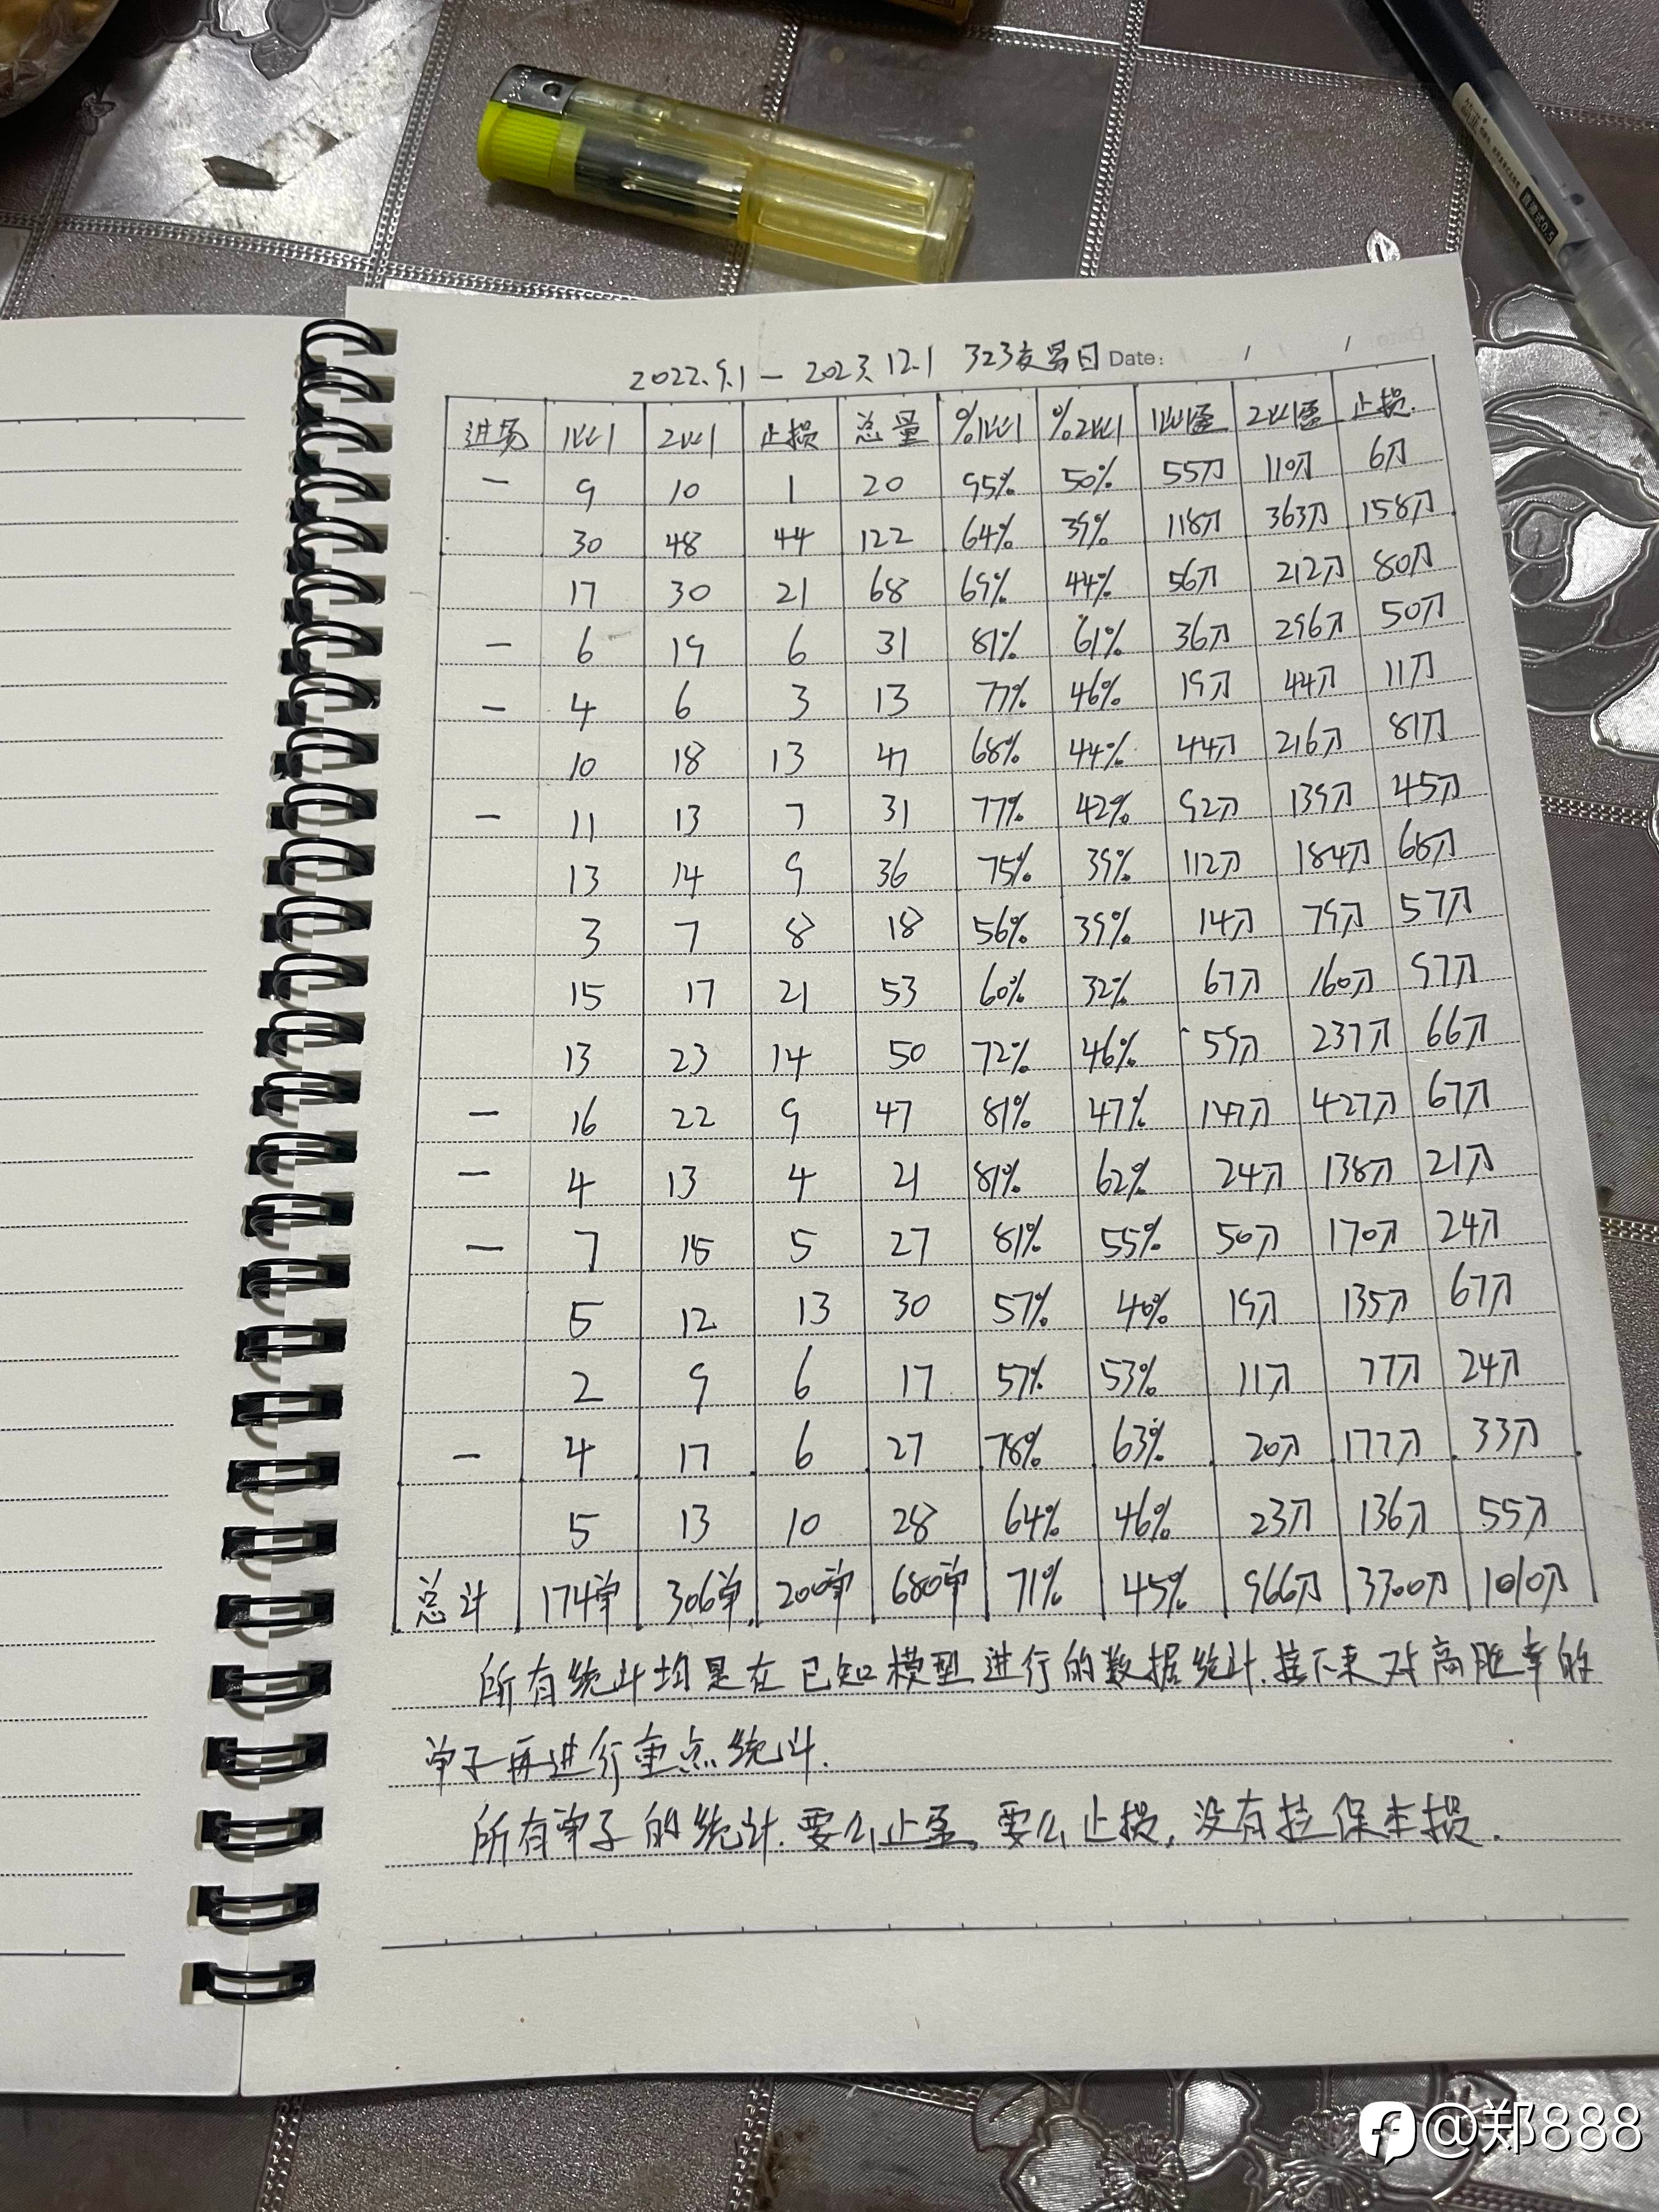 2022.9.1 — 2023.12.1 323交易日 Date: / /
进场 1比1 2比1 止损 总量 %1比1 %2比1 1比1盈 2比1盈 止损.
— 9 10 1 20 95% 50% 55刀 110刀 6刀
30 48 44 122 64% 39% 118刀 363刀 158刀
17 30 21 68 69% 44% 56刀 212刀 80刀
— 6 19 6 31 81% 61% 36刀 296刀 50刀
— 4 6 3 13 77% 46% 19刀 44刀 11刀
10 18 13 41 68% 44% 44刀 216刀 81刀
— 11 13 7 31 77% 42% 92刀 139刀 45刀
13 14 9 36 75% 39% 112刀 184刀 68刀
3 7 8 18 56% 39% 14刀 79刀 57刀
15 17 21 53 60% 32% 67刀 160刀 97刀
13 23 14 50 72% 46% 59刀 237刀 66刀
— 16 22 9 47 81% 47% 147刀 427刀 67刀
— 4 13 4 21 81% 62% 24刀 138刀 21刀
— 7 15 5 27 81% 55% 50刀 170刀 24刀
5 12 13 30 57% 40% 19刀 135刀 67刀
2 9 6 17 57% 53% 11刀 77刀 24刀
— 4 17 6 27 78% 63% 20刀 177刀 33刀
5 13 10 28 64% 46% 23刀 136刀 55刀
总计 174单 306单 200单 680单 71% 45% 966刀 3300刀 1010刀
所有统计均是在已知模型进行的数据统计.接下来对高胜率的
单子再进行重点统计.
所有单子的统计.要么止盈,要么止损,没有拉保本损.
@郑888